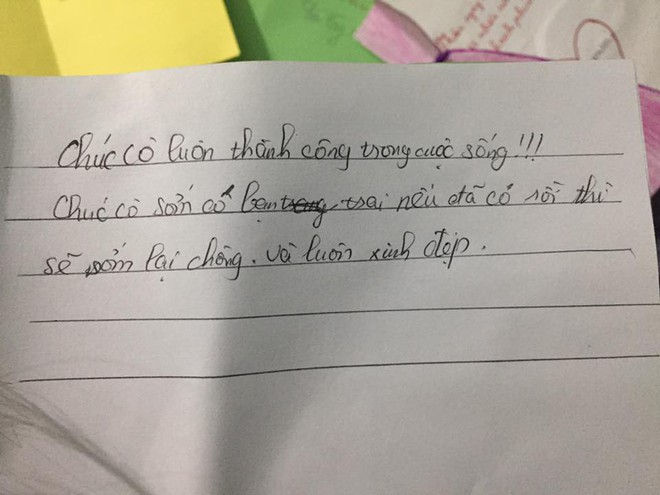 Chúc cô luôn thành công trong cuộc sống!!!
Chúc cô sớm có bạn trai nếu đã có rồi thì
sẽ sớm lại chồng. và luôn xinh đẹp.